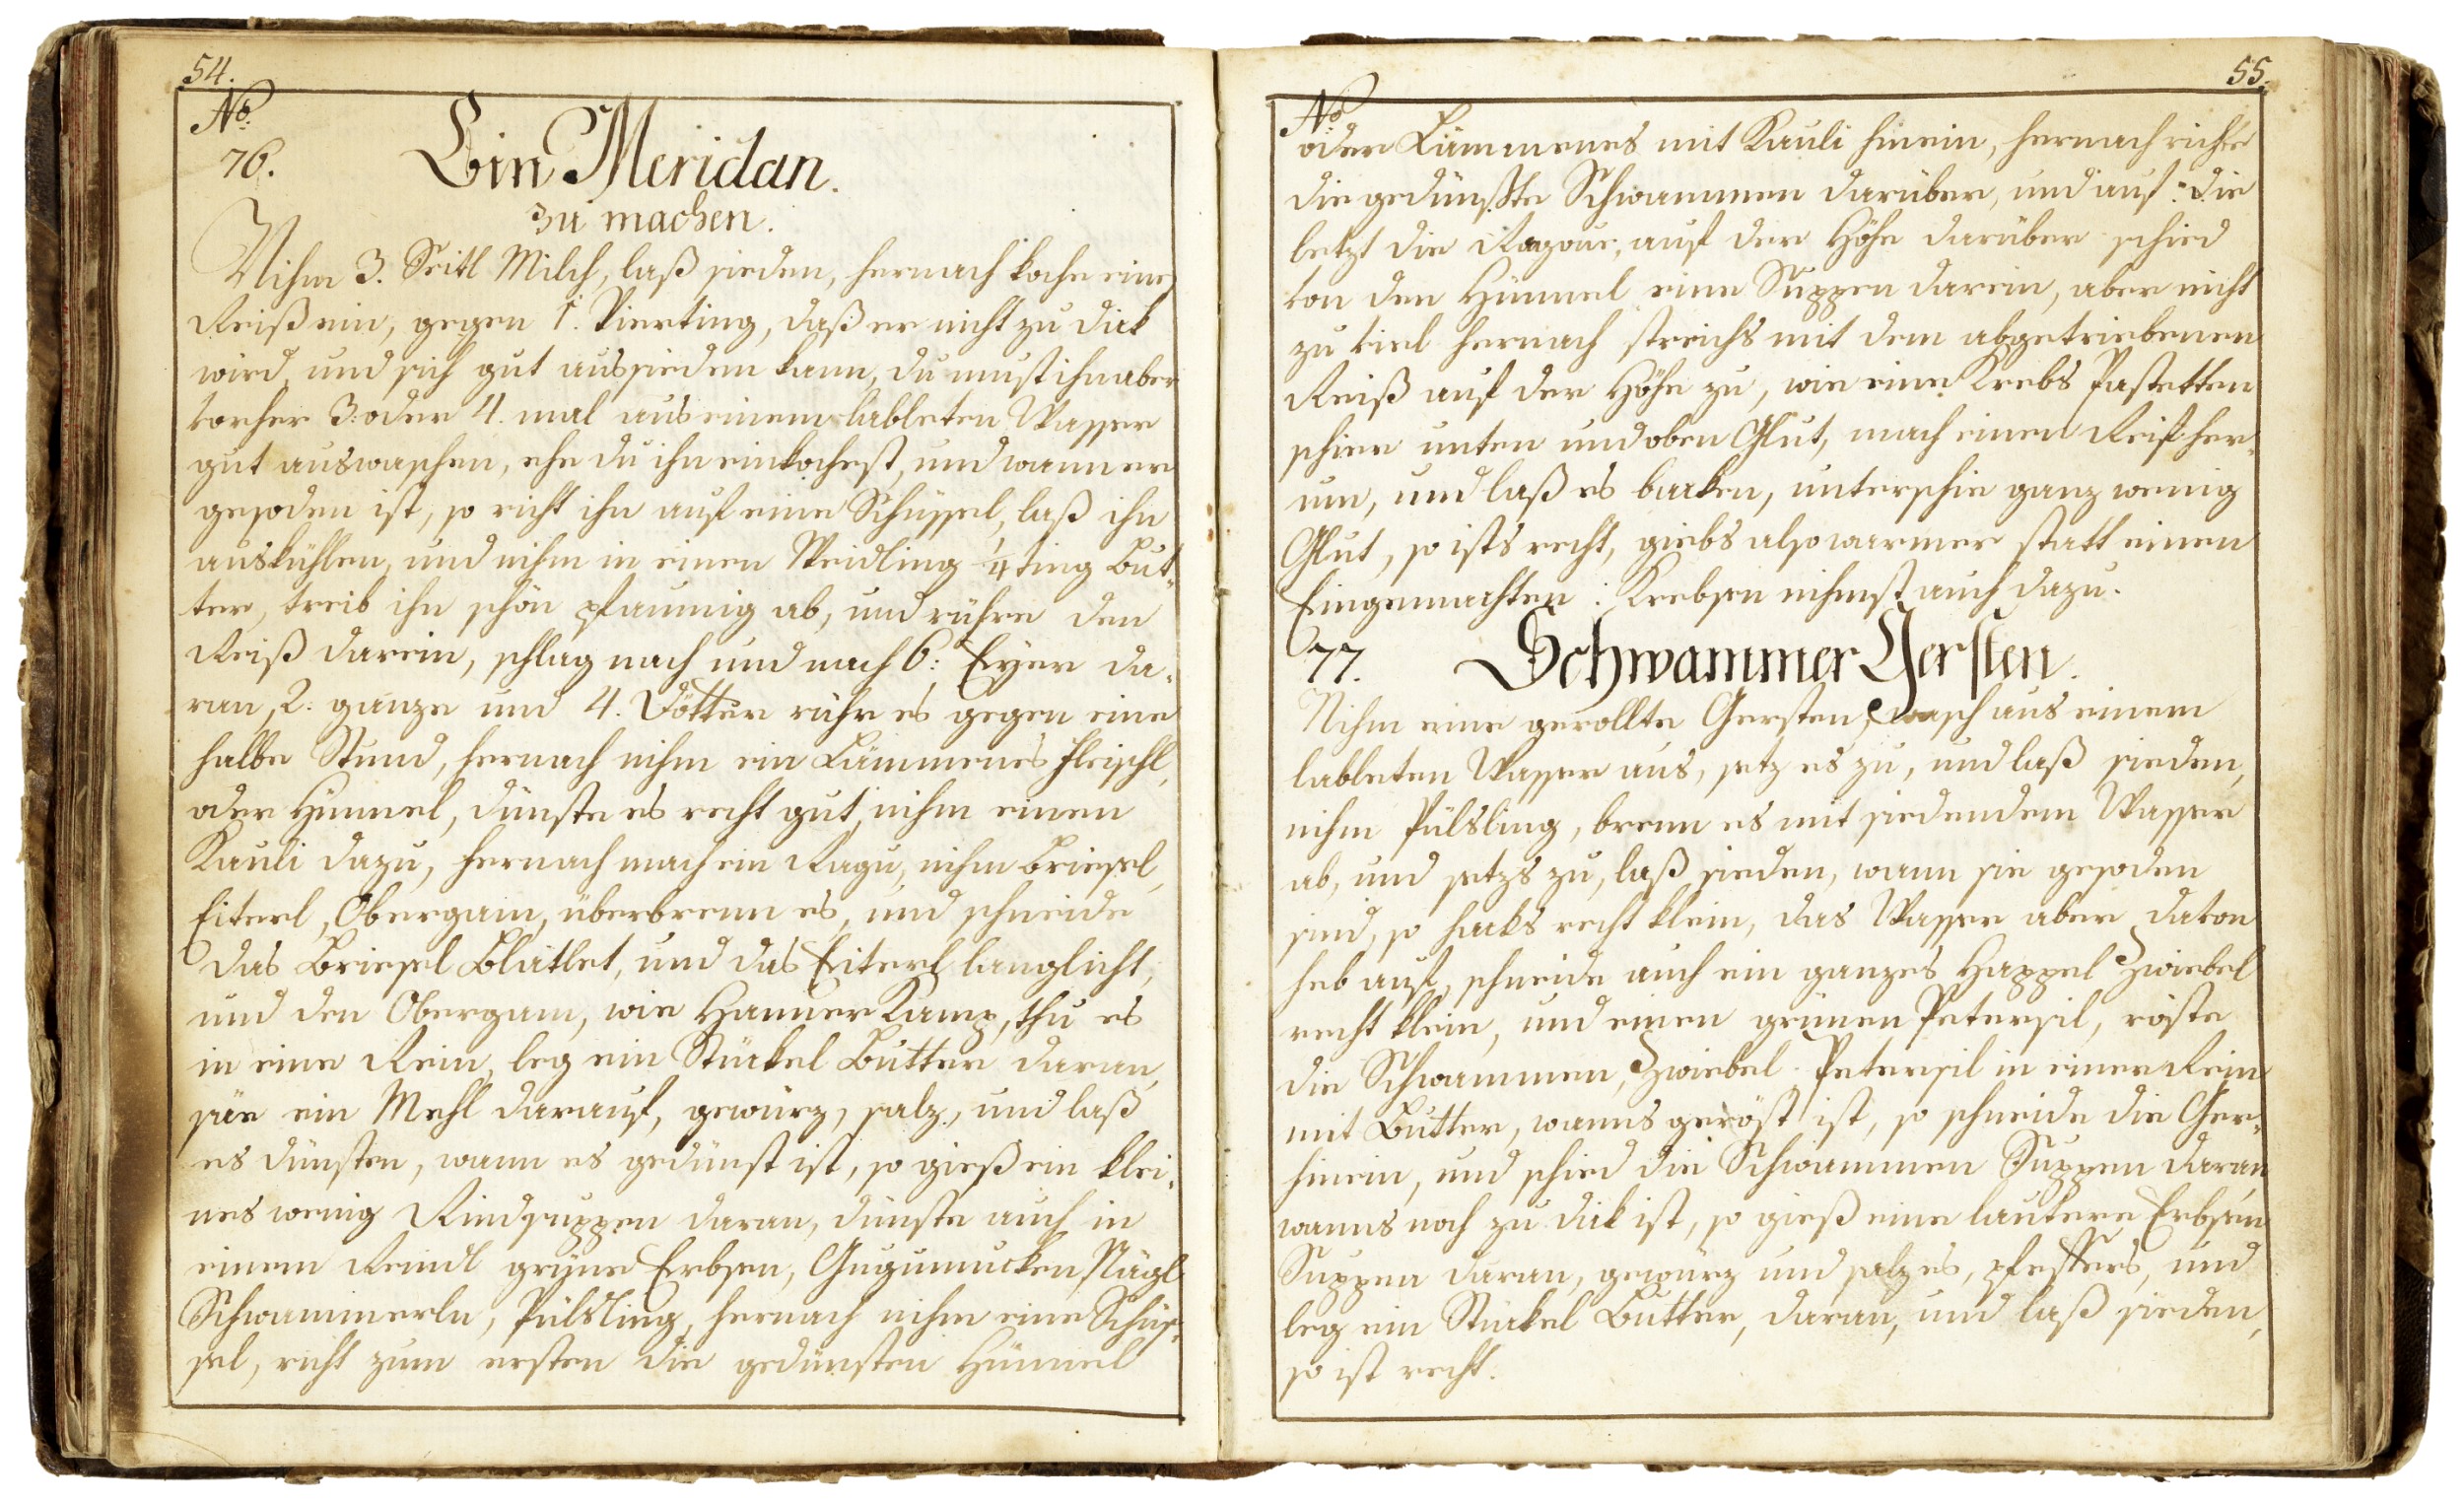 54.
No.
76.
Ein Meridan.
zu machen.
Nihm 3. Seitl Milch, laß sieden, hernach koche eine
Reiß ein, gegen 1. Vierting, daß er nicht zu dick
wird, und sich gut aussieden kann, du must ihn aber
vorher 3: oder 4. mal aus einem lableten Wasser
gut auswaschen, ehe du ihn einkochest, und wann er
gesoden ist, so richt ihn auf eine Schüssel, laß ihn
auskühlen, und nihm in einen Weidling ¼ting But-
ter, treib ihn schön pfaumig ab, und rühre den
Reiß darein, schlag nach und nach 6: Eyer da-
ran, 2: ganze und 4. Dötter rühr es gegen eine
halbe Stund, hernach nihm ein Lämmenes Fleischl,
oder Hünnel, dünste es recht gut, nihm einen
Kauli dazu, hernach mach ein Ragu, nihm Briesel,
Eiterl, Obergam, überbrenn es, und schneide
das Briesel Blatlet, und das Eiterl langlicht,
und den Obergam, wie Hanner Kamp, thu es
in eine Rein, leg ein Stückel Butter daran,
säe ein Mehl darauf, gewürz, salz, und laß
es dünsten, wann es gedünst ist, so gieß ein klei-
nes wenig Rindsuppen daran, dünste auch in
einem Reindl grüne Erbsen, Gugumucken, Nägl
Schwammerln, Pülsling, hernach nihm eine Schüs-
sel, richt zum ersten die gedünsten Hünnel
55.
No.
oder Lämmenes mit Kauli hinein, hernach richte
die gedünste Schwammen darüber, und auf die
letzt die Ragoue, auf der Höhe darüber schied
von den Hünnel eine Suppen darein, aber nicht
zu viel hernach streichs mit dem abgetriebenen
Reiß auf der Höhe zu, wie eine Krebs Pastetten
schier unten und oben Glut, mach einen Reif her-
um, und laß es backen, unterschie ganz wenig
Glut, so ists recht, giebs also warmer statt einen
Eingemachten: Krebsen nihmst auch dazu.
77. Schwammer Gersten.
Nihm eine gerollte Gersten, wasch aus einem
lableten Wasser aus, setz es zu, und laß sieden,
nihm Pülsling, brenn es mit siedendem Wasser
ab, und setzs zu, laß sieden, wann sie gesoden
sind, so hacks recht klein, das Wasser aber davon
heb auf, schneide auch ein ganzes Happel Zwiebel
recht klein, und einen grünen Petersil, röste
die Schwammen, Zwiebel Petersil in einer Rein
mit Butter, wanns geröst ist, so schneide die Ger-
hinein, und schied die Schwammen Suppen daran
wanns noch zu dick ist, so gieß eine lautere Erbsen
Suppen daran, gewürz und salz es, pfeffers, und
leg ein Stückel Butter, daran, und laß sieden,
so ist recht.